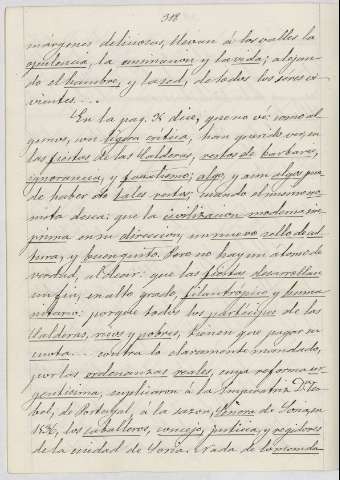 318
márgenes deliciosas, llevan á los valles la
opulencia, la animacion y la vida; alejan-
do el hambre, y la sed, de todos los séres vi-
vientes....
En la pag. X dice, que no vé: como al-
gunos, con ligera crítica, han querido ver, en
las fiestas de las Calderas, restos de barbarie,
ignorancia, y fanatismo; algo, y aun algos pue
de haber de tales restos; cuando el mismo
nota desea: que la civilizacion moderna im-
prima en su direccion, un nuevo sello de cul
tura, y buen gusto. Pero no hay un átomo de
verdad, al decir: que las fiestas desarrollan
un fin, en alto grado, filantrópico y huma-
nitario: porque todos los partícipes de las
Calderas, ricos y pobres, tienen que pagar su
cuota... contra lo claramente mandado,
por las ordenanzas reales, cuya reforma ur-
gentísima, suplicaron á la Emperatriz Dª Isa-
bel, de Portugal, a la sazon, Señora de Soria, en
1536, los caballeros, concejo, justicia, y regidores
de la ciudad de Soria. Nada de la